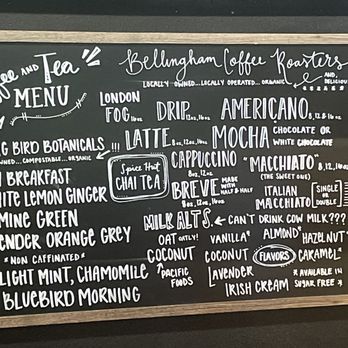 ee AND Tea
MENU
Bellingham Coffee Roasters
LOCALLY OWNED...LOCALLY OPERATED...ORGANIC
AND DELICIOUS
LONDON
FOG 16oz
DRIP 12oz, 16oz
AMERICANO 8, 12, & 16oz
LATTE 8oz, 12oz, 16oz
MOCHA CHOCOLATE OR
WHITE CHOCOLATE
G BIRD BOTANICALS
OWNED...COMPOSTABLE...ORGANIC !!!
BREAKFAST
ITE LEMON GINGER
MINE GREEN
ENDER ORANGE GREY
*NON CAFFINATED*
LIGHT MINT, CHAMOMILE
BLUEBIRD MORNING
Spice Hut
CHAI TEA
CAPPUCCINO
8oz, 12oz, 16oz
BREVE MADE
WITH
HALF & HALF
8oz, 12oz, 16oz
"MACCHIATO" 8, 12, 16oz
(THE SWEET ONE)
ITALIAN
MACCHIATO
SINGLE
OR
DOUBLE
MILK ALTS. ← CAN'T DRINK COW MILK???
OAT OATLY!
COCONUT
PACIFIC
FOODS
VANILLA* ALMOND* HAZELNUT*
COCONUT FLAVORS CARAMEL*
LAVENDER
IRISH CREAM
* AVAILABLE IN
SUGAR FREE